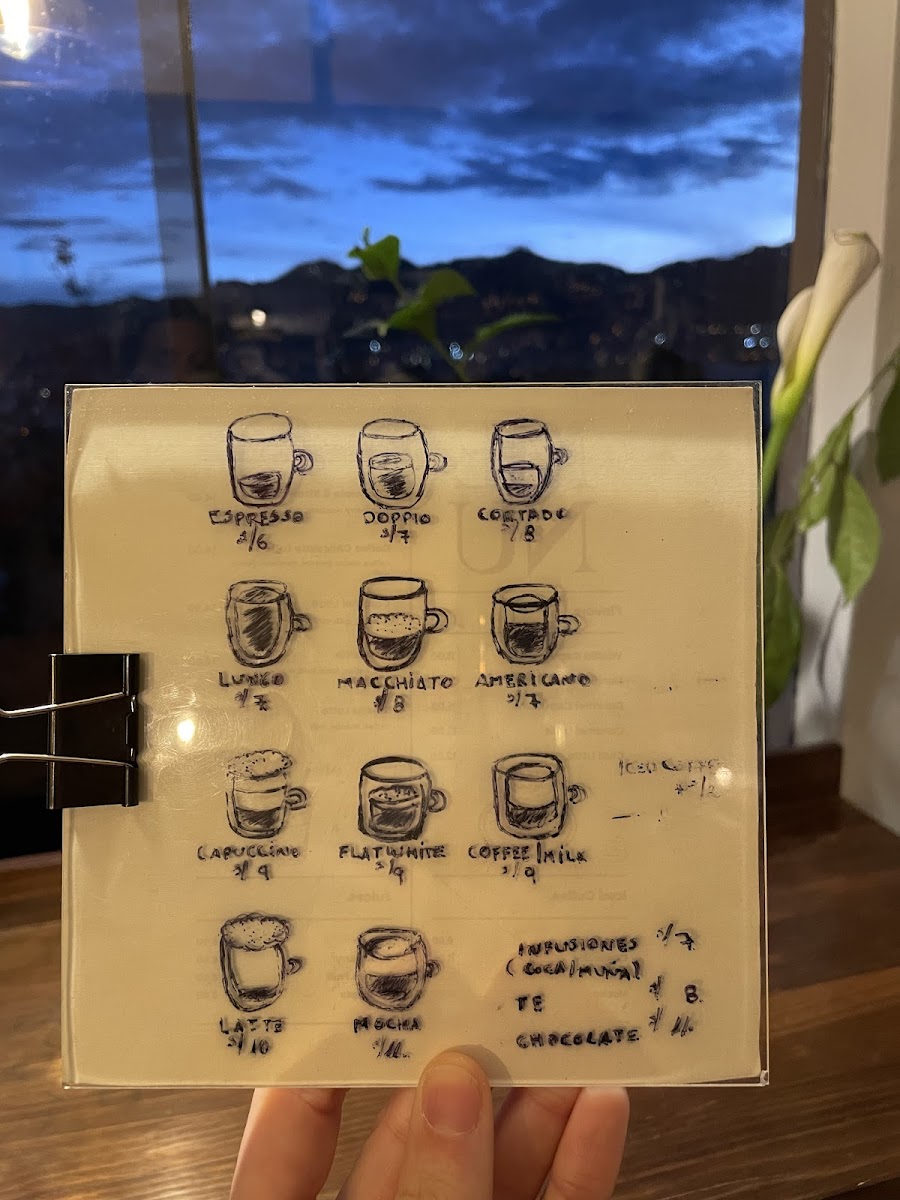 ESPRESSO
S/6
DOPPIO
S/7
CORTADO
S/8
LUNGO
S/7
MACCHIATO
S/8
AMERICANO
S/7
CAPUCCINO
S/9
FLATWHITE
S/9
COFFEE/MILK
S/9
ICED COFFE
LATTE
S/10
MOCHA
S/11.
INFUSIONES S/7
(COCA/MUÑA)
TE S/ 8.
CHOCOLATE S/ 11.
NU